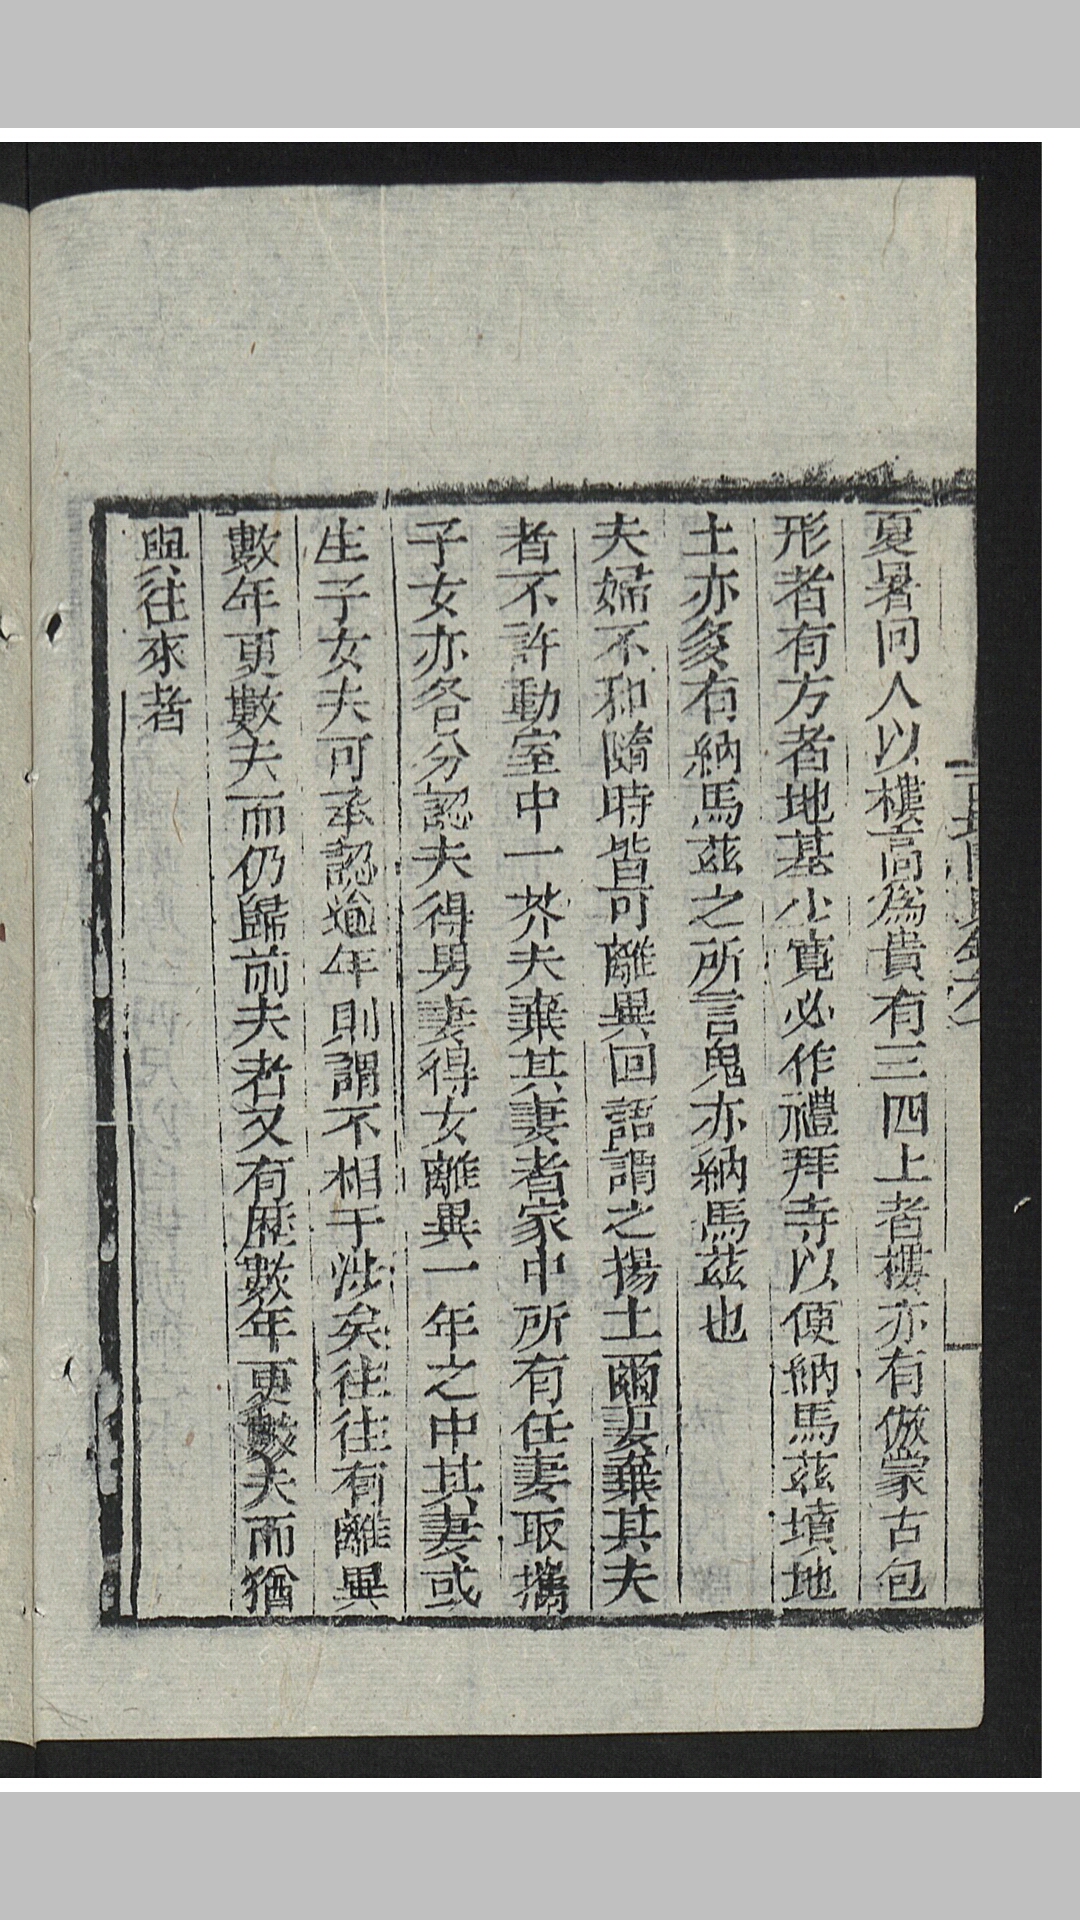 夏暑同人以樓高為貴有三四上者樓亦有倣蒙古包
形者有方者地基少寬必作禮拜寺以便納馬茲墳地
土亦多有納馬茲之所言鬼亦納馬茲也
夫婦不和隨時皆可離異回語謂之揚土爾妻棄其夫
者不許動室中一芥夫棄其妻者家中所有任妻取攜
子女亦各分認夫得男妻得女離異一年之中其妻或
生子女夫可承認逾年則謂不相干涉矣往往有離異
數年更數夫而仍歸前夫者又有歷數年更數夫而猶
與往來者